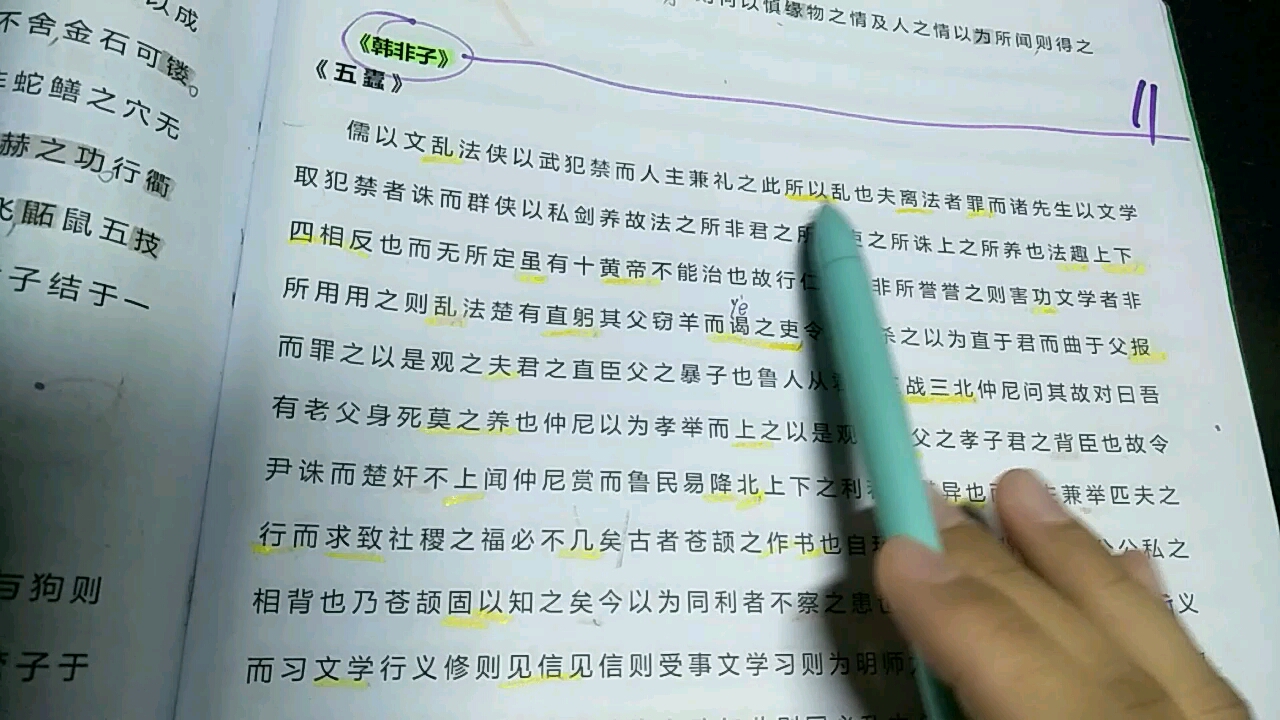 以成
不舍金石可镂。
蛇鳝之穴无
赫之功行衢
飞鼫鼠五技
子结于一
与狗则
子于
以慎缘物之情及人之情以为所闻则得之
《韩非子》
11
《五蠹》
儒以文乱法侠以武犯禁而人主兼礼之此所以乱也夫离法者罪而诸先生以文学
取犯禁者诛而群侠以私剑养故法之所非君之所 之所诛上之所养也法趣上下
四相反也而无所定虽有十黄帝不能治也故行仁 非所誉誉之则害功文学者非
所用用之则乱法楚有直躬其父窃羊而谒之吏令 杀之以为直于君而曲于父报
yè
而罪之以是观之夫君之直臣父之暴子也鲁人从 战三北仲尼问其故对曰吾
有老父身死莫之养也仲尼以为孝举而上之以是观 父之孝子君之背臣也故令
尹诛而楚奸不上闻仲尼赏而鲁民易降北上下之利 异也而 兼举匹夫之
行而求致社稷之福必不几矣古者苍颉之作书也自 公私之
相背也乃苍颉固以知之矣今以为同利者不察之患也 义
而习文学行义修则见信见信则受事文学习则为明师